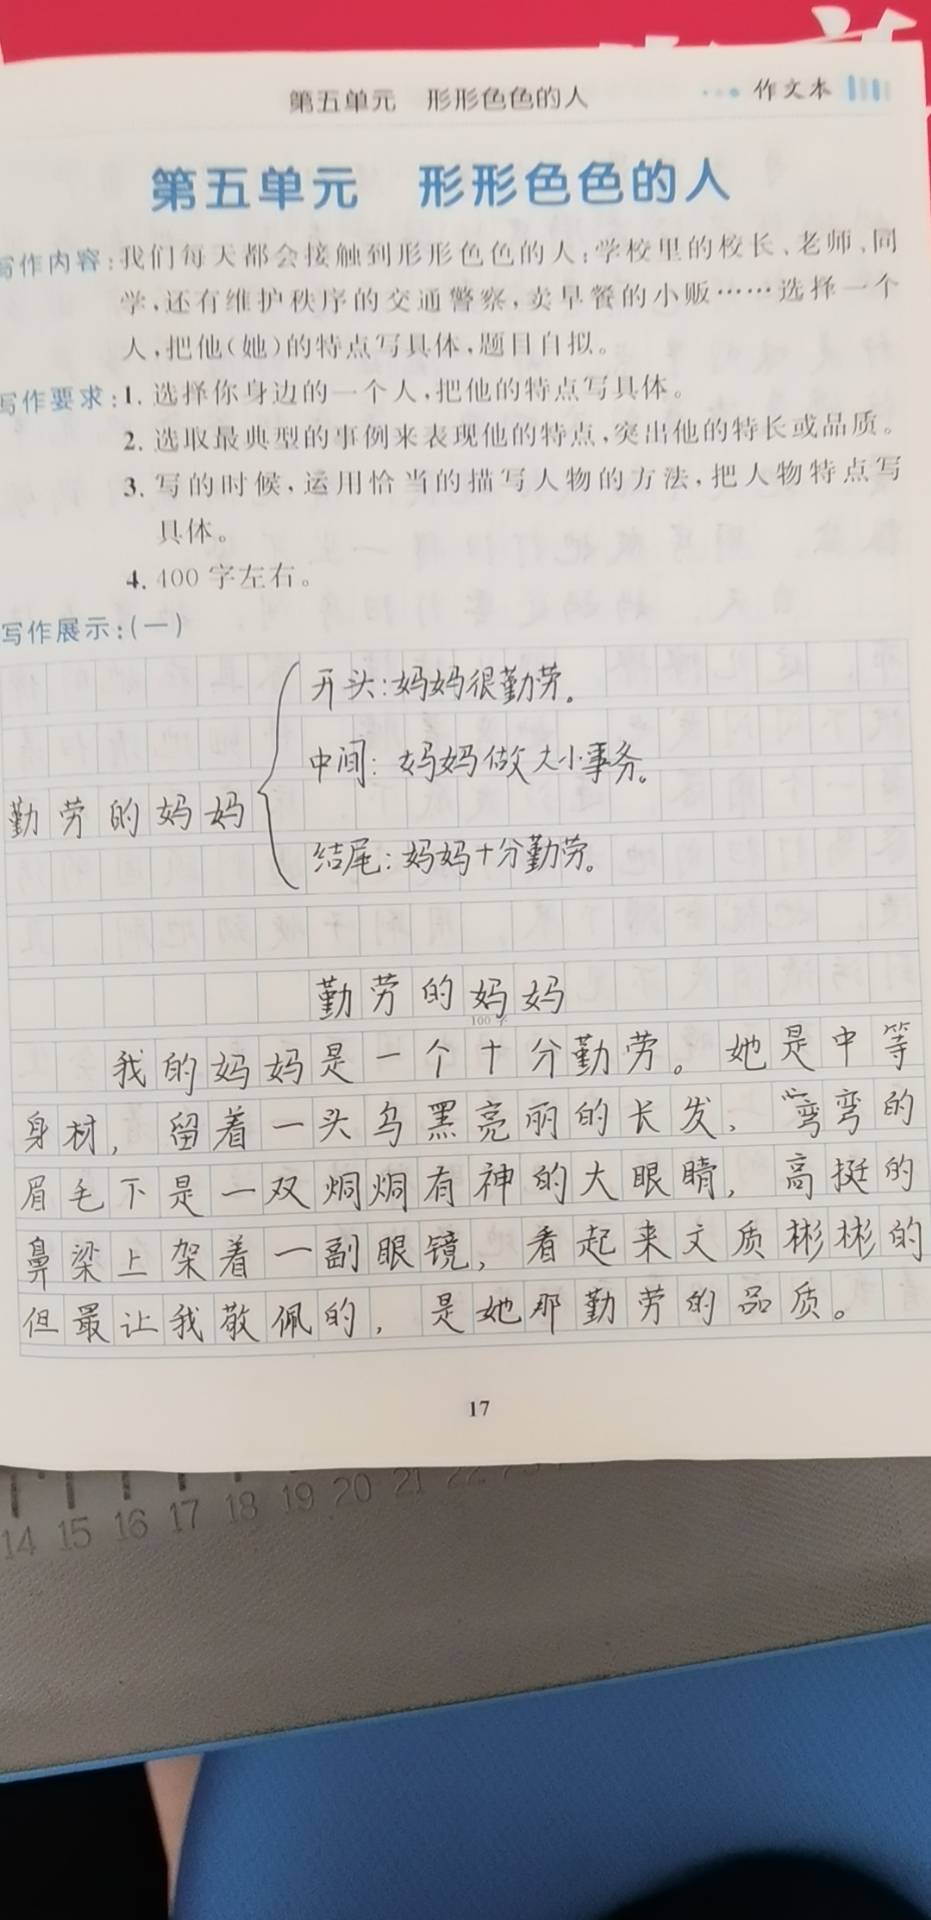 第五单元 形形色色的人 作文本
第五单元 形形色色的人
写作内容:我们每天都会接触到形形色色的人:学校里的校长、老师、同
学,还有维护秩序的交通警察,卖早餐的小贩……选择一个
人,把他(她)的特点写具体,题目自拟。
写作要求:1. 选择你身边的一个人,把他的特点写具体。
2. 选取最典型的事例来表现他的特点,突出他的特长或品质。
3. 写的时候,运用恰当的描写人物的方法,把人物特点写
具体。
4. 400字左右。
写作展示:(一)
开头:妈妈很勤劳。
中间:妈妈做大小事务。
勤劳的妈妈
结尾:妈妈十分勤劳。
勤劳的妈妈
100字
我的妈妈是一个十分勤劳。她是中等
身材,留着一头乌黑亮丽的长发,弯弯的
眉毛下是一双炯炯有神的大眼睛,高挺的
鼻梁上架着一副眼镜,看起来文质彬彬的
但最让我敬佩的,是她那勤劳的品质。
17
14 15 16 17 18 19 20 21 22